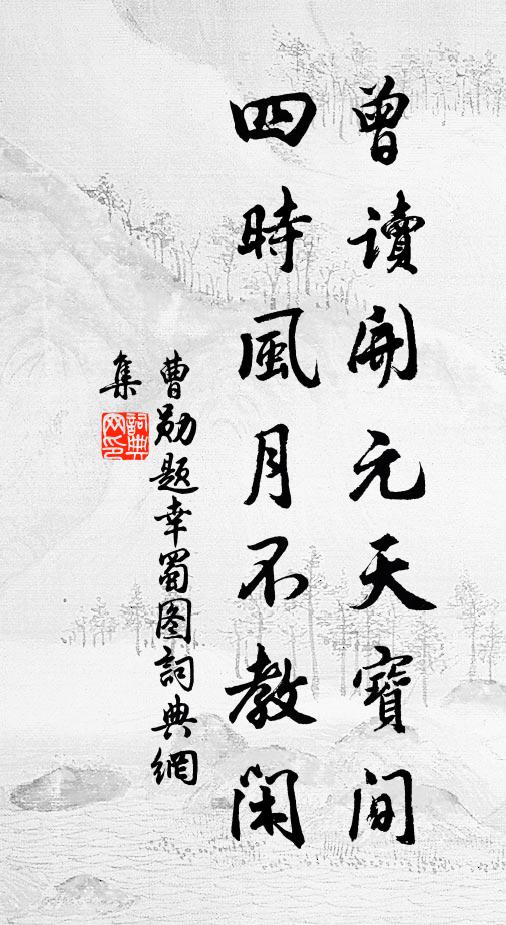 曾讀開元天寶間
四時風月不教閑
曹勛題幸蜀图詞典網
集
詞典网印